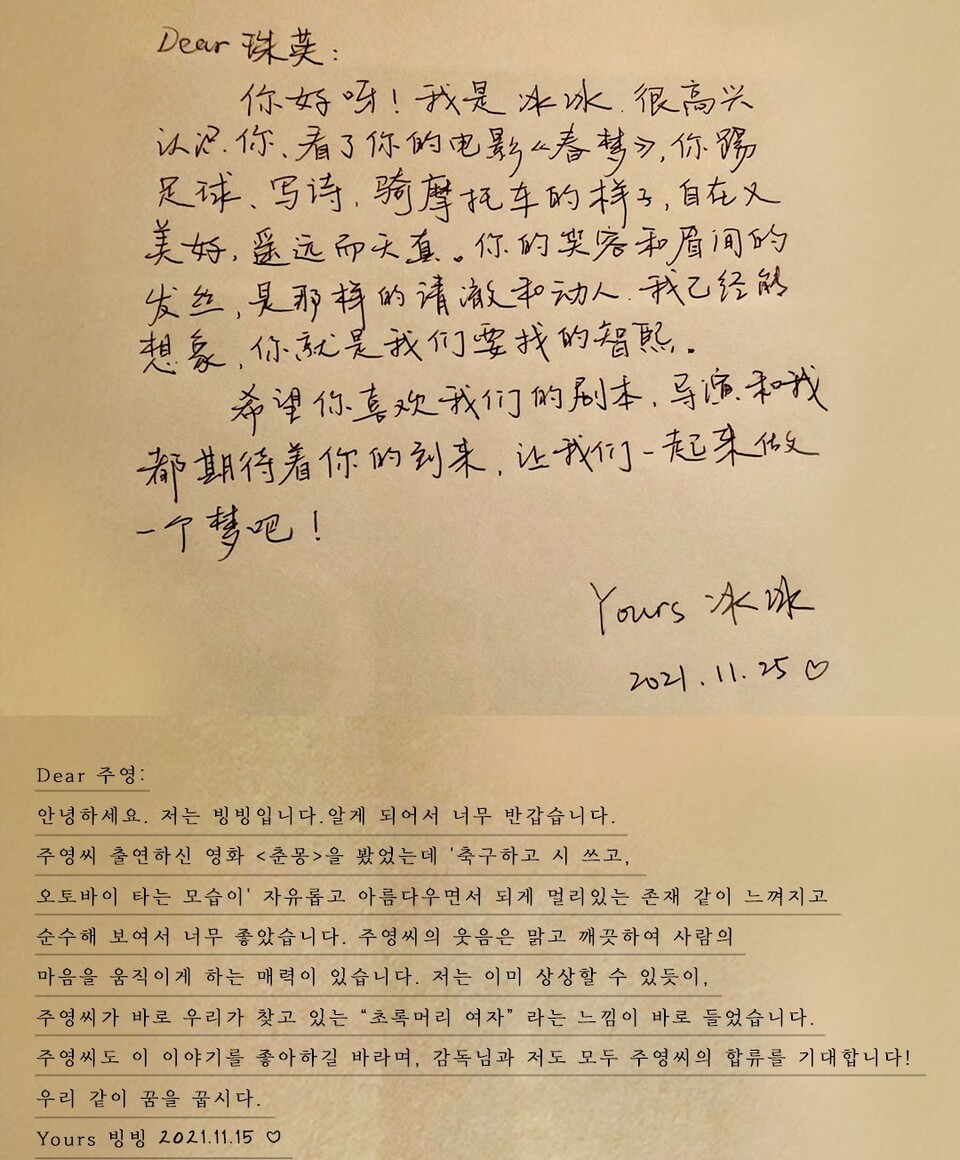 Dear 珠英:
你好呀!我是冰冰.很高兴
认识你、看了你的电影《春梦》,你踢
足球、写诗.骑摩托车的样子,自在又
美好,遥远而天真。你的笑容和眉间的
发丝,是那样的清澈和动人.我已经能
想象,你就是我们要找的智熙。
希望你喜欢我们的剧本.导演和我
都期待着你的到来,让我们一起来做
一个梦吧!
Yours 冰冰
2021.11.25 ♡
Dear 주영:
안녕하세요. 저는 빙빙입니다.알게 되어서 너무 반갑습니다.
주영씨 출연하신 영화 <춘몽>을 봤었는데 '축구하고 시 쓰고,
오토바이 타는 모습이' 자유롭고 아름다우면서 되게 멀리있는 존재 같이 느껴지고
순수해 보여서 너무 좋았습니다. 주영씨의 웃음은 맑고 깨끗하여 사람의
마음을 움직이게 하는 매력이 있습니다. 저는 이미 상상할 수 있듯이,
주영씨가 바로 우리가 찾고 있는 “초록머리 여자” 라는 느낌이 바로 들었습니다.
주영씨도 이 이야기를 좋아하길 바라며, 감독님과 저도 모두 주영씨의 합류를 기대합니다!
우리 같이 꿈을 꿉시다.
Yours 빙빙 2021.11.15 ♡